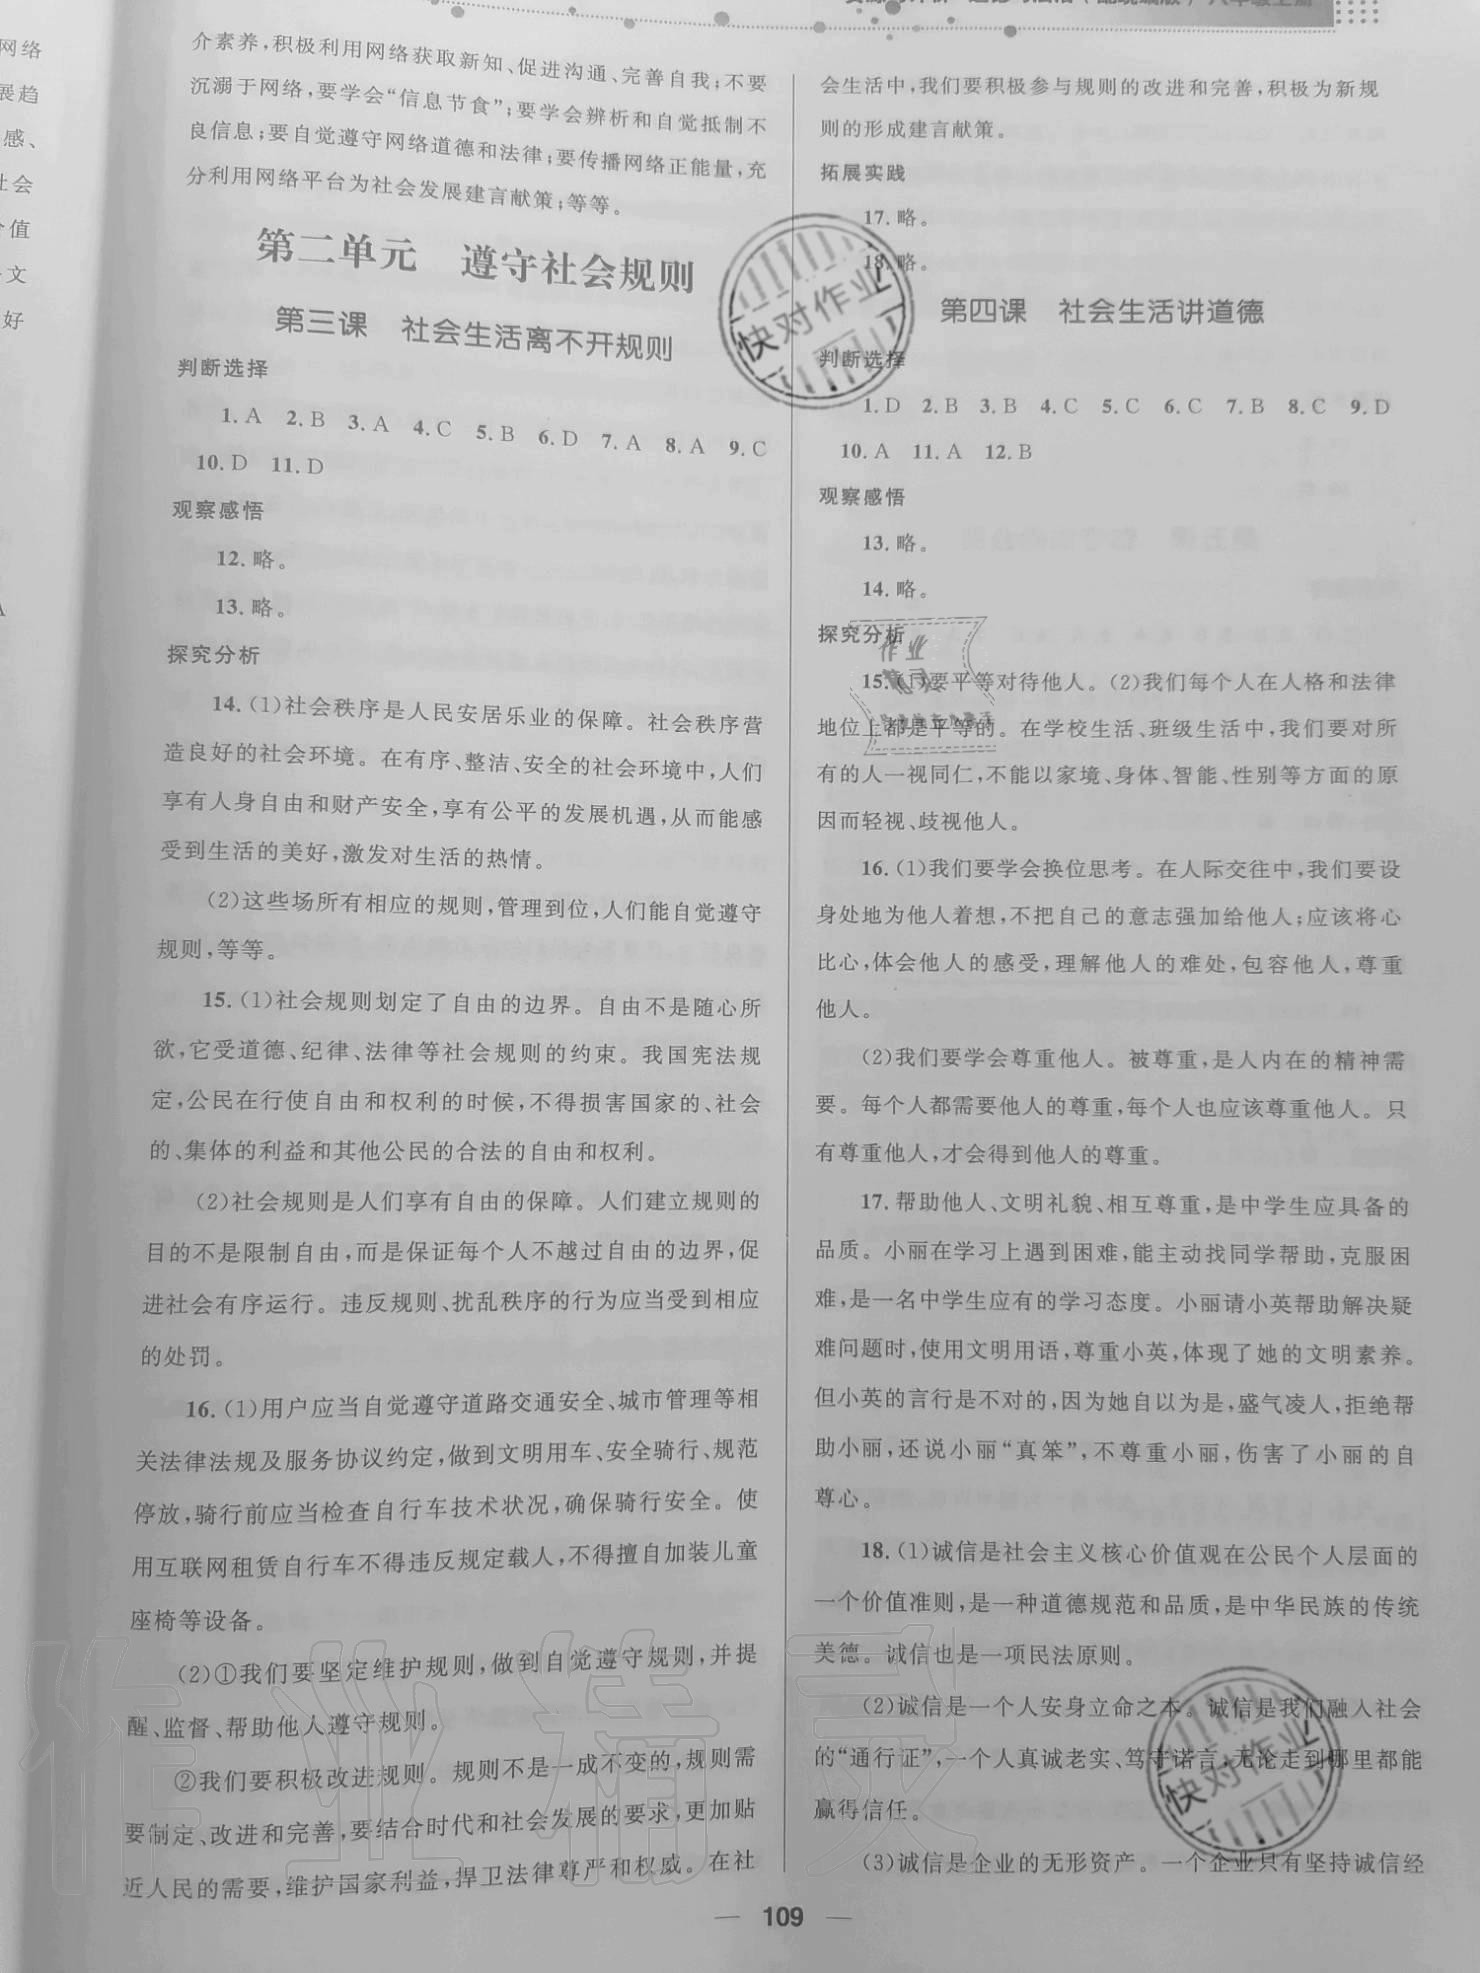 网络
展趋
感、
社会
价值
文
好
介素养,积极利用网络获取新知、促进沟通、完善自我;不要
沉溺于网络,要学会“信息节食”;要学会辨析和自觉抵制不
良信息;要自觉遵守网络道德和法律;要传播网络正能量,充
分利用网络平台为社会发展建言献策;等等。
第二单元 遵守社会规则
第三课 社会生活离不开规则
判断选择
1. A 2. B 3. A 4. C 5. B 6. D 7. A 8. A 9. C
10. D 11. D
观察感悟
12. 略。
13. 略。
探究分析
14. (1)社会秩序是人民安居乐业的保障。社会秩序营
造良好的社会环境。在有序、整洁、安全的社会环境中,人们
享有人身自由和财产安全,享有公平的发展机遇,从而能感
受到生活的美好,激发对生活的热情。
(2)这些场所有相应的规则,管理到位,人们能自觉遵守
规则,等等。
15. (1)社会规则划定了自由的边界。自由不是随心所
欲,它受道德、纪律、法律等社会规则的约束。我国宪法规
定,公民在行使自由和权利的时候,不得损害国家的、社会
的、集体的利益和其他公民的合法的自由和权利。
(2)社会规则是人们享有自由的保障。人们建立规则的
目的不是限制自由,而是保证每个人不越过自由的边界,促
进社会有序运行。违反规则、扰乱秩序的行为应当受到相应
的处罚。
16. (1)用户应当自觉遵守道路交通安全、城市管理等相
关法律法规及服务协议约定,做到文明用车、安全骑行、规范
停放,骑行前应当检查自行车技术状况,确保骑行安全。使
用互联网租赁自行车不得违反规定载人,不得擅自加装儿童
座椅等设备。
(2)①我们要坚定维护规则,做到自觉遵守规则,并提
醒、监督、帮助他人遵守规则。
②我们要积极改进规则。规则不是一成不变的,规则需
要制定、改进和完善,要结合时代和社会发展的要求,更加贴
近人民的需要,维护国家利益,捍卫法律尊严和权威。在社
会生活中,我们要积极参与规则的改进和完善,积极为新规
则的形成建言献策。
拓展实践
17. 略。
18. 略。
第四课 社会生活讲道德
判断选择
1. D 2. B 3. B 4. C 5. C 6. C 7. B 8. C 9. D
10. A 11. A 12. B
观察感悟
13. 略。
14. 略。
探究分析
15. (1)要平等对待他人。(2)我们每个人在人格和法律
地位上都是平等的。在学校生活、班级生活中,我们要对所
有的人一视同仁,不能以家境、身体、智能、性别等方面的原
因而轻视、歧视他人。
16. (1)我们要学会换位思考。在人际交往中,我们要设
身处地为他人着想,不把自己的意志强加给他人;应该将心
比心,体会他人的感受,理解他人的难处,包容他人,尊重
他人。
(2)我们要学会尊重他人。被尊重,是人内在的精神需
要。每个人都需要他人的尊重,每个人也应该尊重他人。只
有尊重他人,才会得到他人的尊重。
17. 帮助他人、文明礼貌、相互尊重,是中学生应具备的
品质。小丽在学习上遇到困难,能主动找同学帮助,克服困
难,是一名中学生应有的学习态度。小丽请小英帮助解决疑
难问题时,使用文明用语,尊重小英,体现了她的文明素养。
但小英的言行是不对的,因为她自以为是,盛气凌人,拒绝帮
助小丽,还说小丽“真笨”,不尊重小丽,伤害了小丽的自
尊心。
18. (1)诚信是社会主义核心价值观在公民个人层面的
一个价值准则,是一种道德规范和品质,是中华民族的传统
美德。诚信也是一项民法原则。
(2)诚信是一个人安身立命之本。诚信是我们融入社会
的“通行证”,一个人真诚老实、笃守诺言,无论走到哪里都能
赢得信任。
(3)诚信是企业的无形资产。一个企业只有坚持诚信经
109
快对作业
快对作业
作业
作业精灵